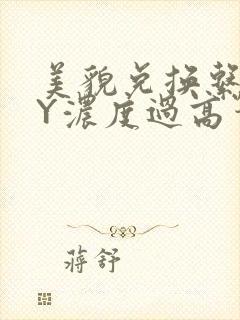 美貌兑换繫
Y濃度過高
蔣舒